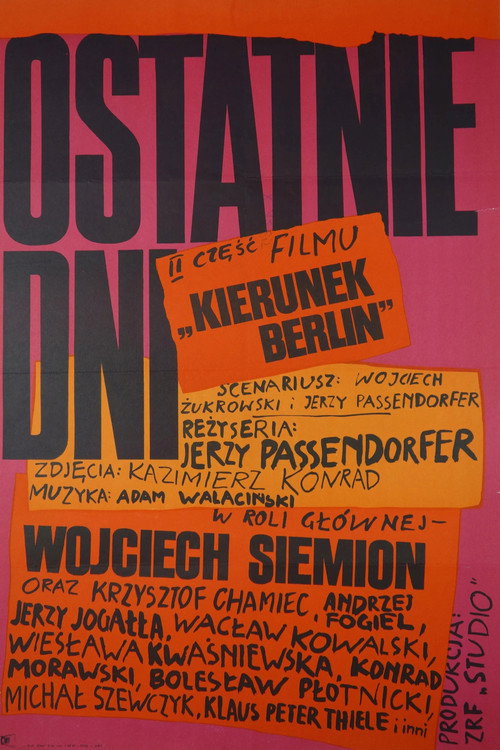 OSTATNIE
DNI
II CZĘŚĆ FILMU
„KIERUNEK
BERLIN”
SCENARIUSZ: WOJCIECH
ŻUKROWSKI i JERZY PASSENDORFER
REŻYSERIA:
JERZY PASSENDORFER
ZDJĘCIA: KAZIMIERZ KONRAD
MUZYKA: ADAM WALACIŃSKI
W ROLI GŁÓWNEJ–
WOJCIECH SIEMION
ORAZ KRZYSZTOF CHAMIEC, ANDRZEJ
FOGIEL,
JERZY JOGAŁŁA, WACŁAW KOWALSKI,
WIESŁAWA KWAŚNIEWSKA, KONRAD
MORAWSKI, BOLESŁAW PŁOTNICKI,
MICHAŁ SZEWCZYK, KLAUS PETER THIELE i inni
PRODUKCJA:
ZRF „STUDIO”